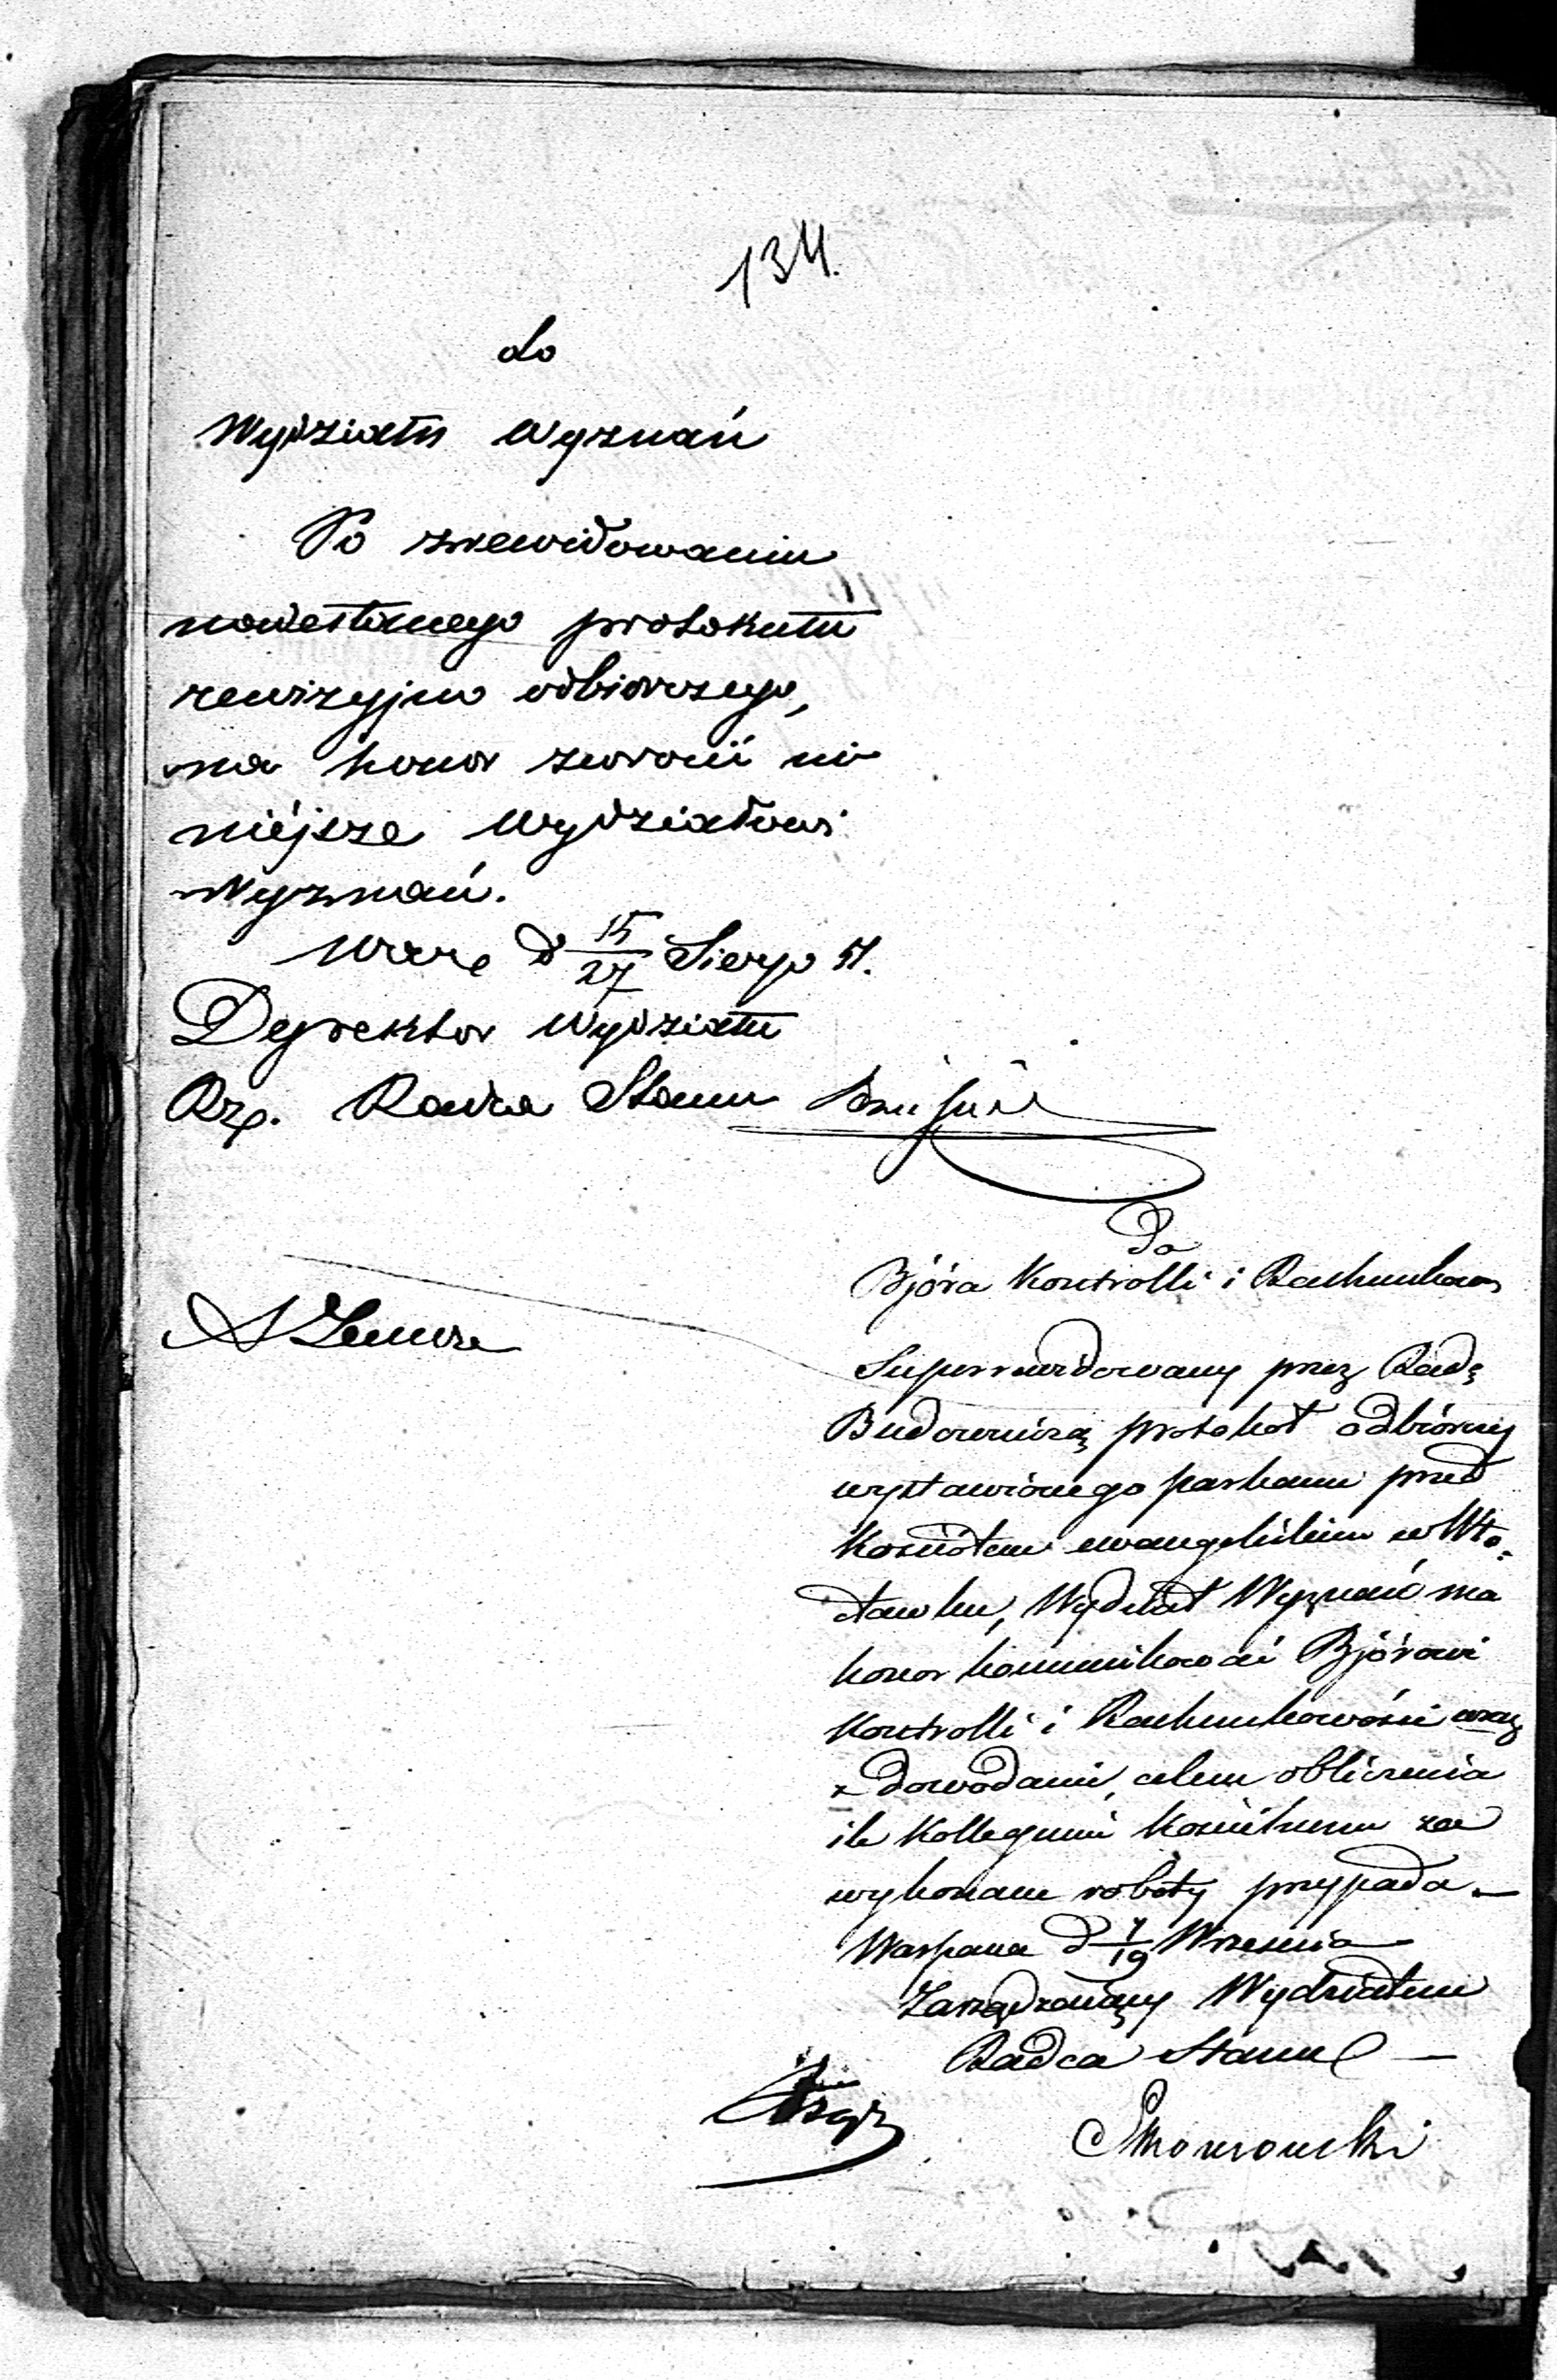 134.
do
Wydziału Wyznań
Po zrewidowaniu
nadesłanego protokułu
rewizyjno odbiorczego,
ma honor zwrócić ni
niejsze Wydziałowi
Wyznań.
Warz d 15/27 Sierp 51.
Dyrektor Wydziału
Rz. Radca Stanu
Do
Bjóra Kontrolli i Rachunkow
Superrewidowany przez Radę
Budowniczą protokół odbiórczy
wystawionego parkanu przed
Kościołem ewangelickim w Wło-
cławku, Wydział Wyznań ma
honor kommunikować Bjórowi
Kontrolli i Rachunkowości wraz
z dowodami, celem obliczenia
ile Kollegium Kościelnemu za
wykonane roboty przypada.
Warszawa d 7/19 Września
Zarządzający Wydziałem
Radca Stanu